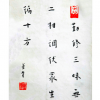 勤修三昧無
二相調伏眾生
徧十方